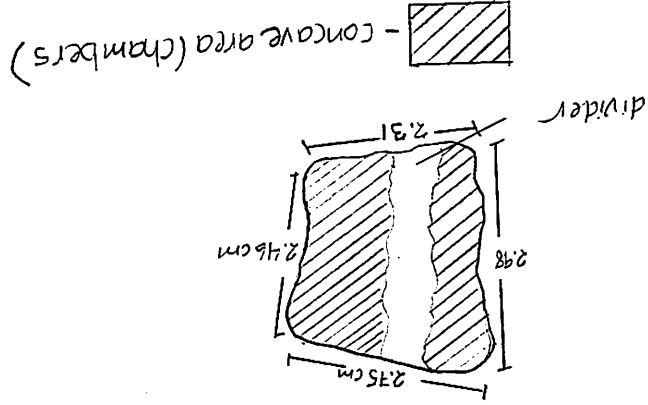 2.75cm
2.98
2.46cm
2.31
divider
- concave area (chambers)